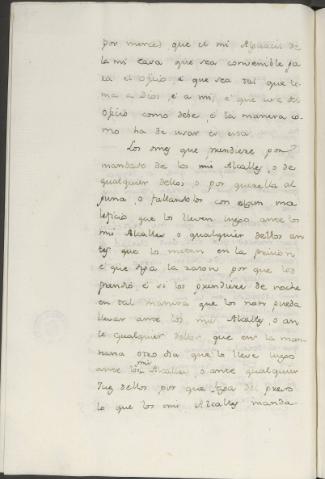 por merced, que el mi Alguacil de
la mi casa que sea convenible pa
ra el oficio e que sea tal que te
ma a Dios, e a mi, e que use del
oficio como debe, e la manera co
mo ha de usar es esta
Los omes que prendiere por
mandado de los mis Alcalles, o de
qualquier dellos, o por querella al
guna, o fallandolos con algun ma
leficio que los lleven luego ante los
mis Alcalles o qualquier dellos an
tes que lo metan en la prision
e que diga la razon por que los
prendió, e si los prendiere de noche
en tal manera que los non pueda
llevar ante los mis Alcalles, o an
te qualquier dellos que en la man
nana otro dia que lo lleve luego
ante los mis Alcalles, o ante qualquier
dellos por que diga del preso
lo que los mis Alcalles manda